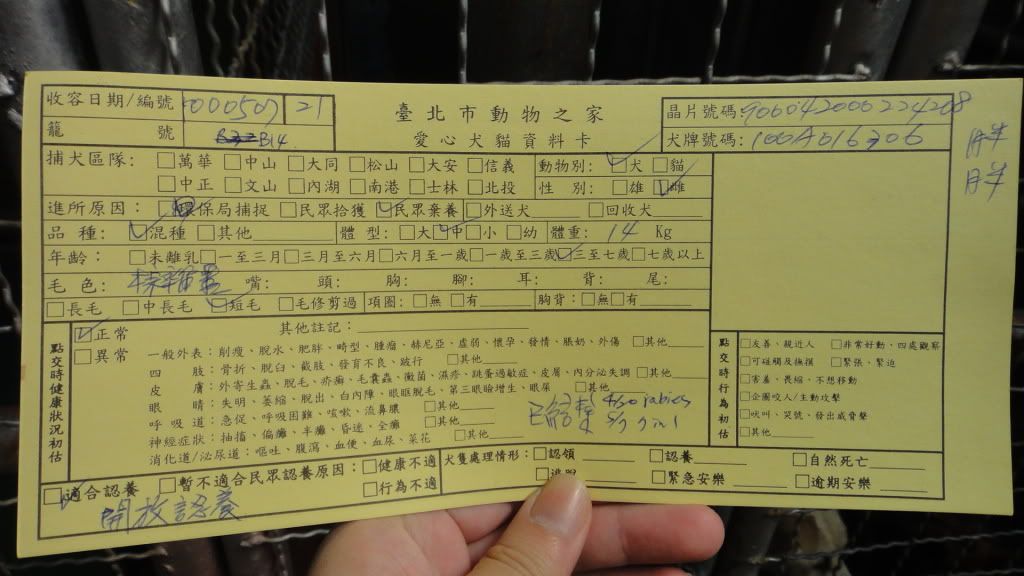 收容日期/編號 1000507 21
臺北市動物之家
晶片號碼:900042000224208
籠 號 B14
愛心犬貓資料卡
犬牌號碼: 100A016306
胖胖
捕犬區隊: □萬華 □中山 □大同 □松山 □大安 □信義
□中正 □文山 □內湖 □南港 □士林 □北投
動物別: ☑犬 □貓
性 別: □雄 ☑雌
進所原因: □環保局捕捉 □民眾拾獲 ☑民眾棄養 □外送犬 □回收犬
品 種: ☑混種 □其他 體 型: □大 ☑中 □小 □幼 體重: 14 Kg
年齡: □未離乳 □一至三月 □三月至六月 □六月至一歲 □一歲至三歲 ☑三至七歲 □七歲以上
毛 色: 嘴: 頭: 胸: 腳: 耳: 背: 尾:
□長毛 □中長毛 ☑短毛 □毛修剪過 項圈: □無 □有 胸背: □無 □有
點交時健康狀況初估
☑正常 其他註記:
□異常 一般外表:削瘦、脫水、肥胖、畸型、腫瘤、赫尼亞、虛弱、懷孕、發情、脹奶、外傷 □其他
四 肢:骨折、脫臼、截肢、發育不良、跛行 □其他
皮 膚:外寄生蟲、脫毛、疥癬、毛囊蟲、黴菌、濕疹、跳蚤過敏症、皮屑、內分泌失調 □其他
眼 睛:失明、萎縮、脫出、白內障、眼眶脫毛、第三眼瞼增生、眼屎 □其他
呼 吸 道:急促、呼吸困難、咳嗽、流鼻膿 □其他
神經症狀:抽搐、偏癱、半癱、昏迷、全癱 □其他
消化道/泌尿道:嘔吐、腹瀉、血便、血尿、菜花 □其他
已結紮 4/30 rabies
5/7 7 in 1
點交時行為初估
□友善、親近人 □非常好動、四處觀察
□可碰觸及撫摸 □緊張、緊迫
□害羞、畏縮、不想移動
□企圖咬人/主動攻擊
□吠叫、哭號、發出威脅聲
□其他
☑適合認養 □暫不適合民眾認養原因: □健康不適
□行為不適
開放認養
犬隻處理情形: □認領 □認養 □自然死亡
□緊急安樂 □逾期安樂